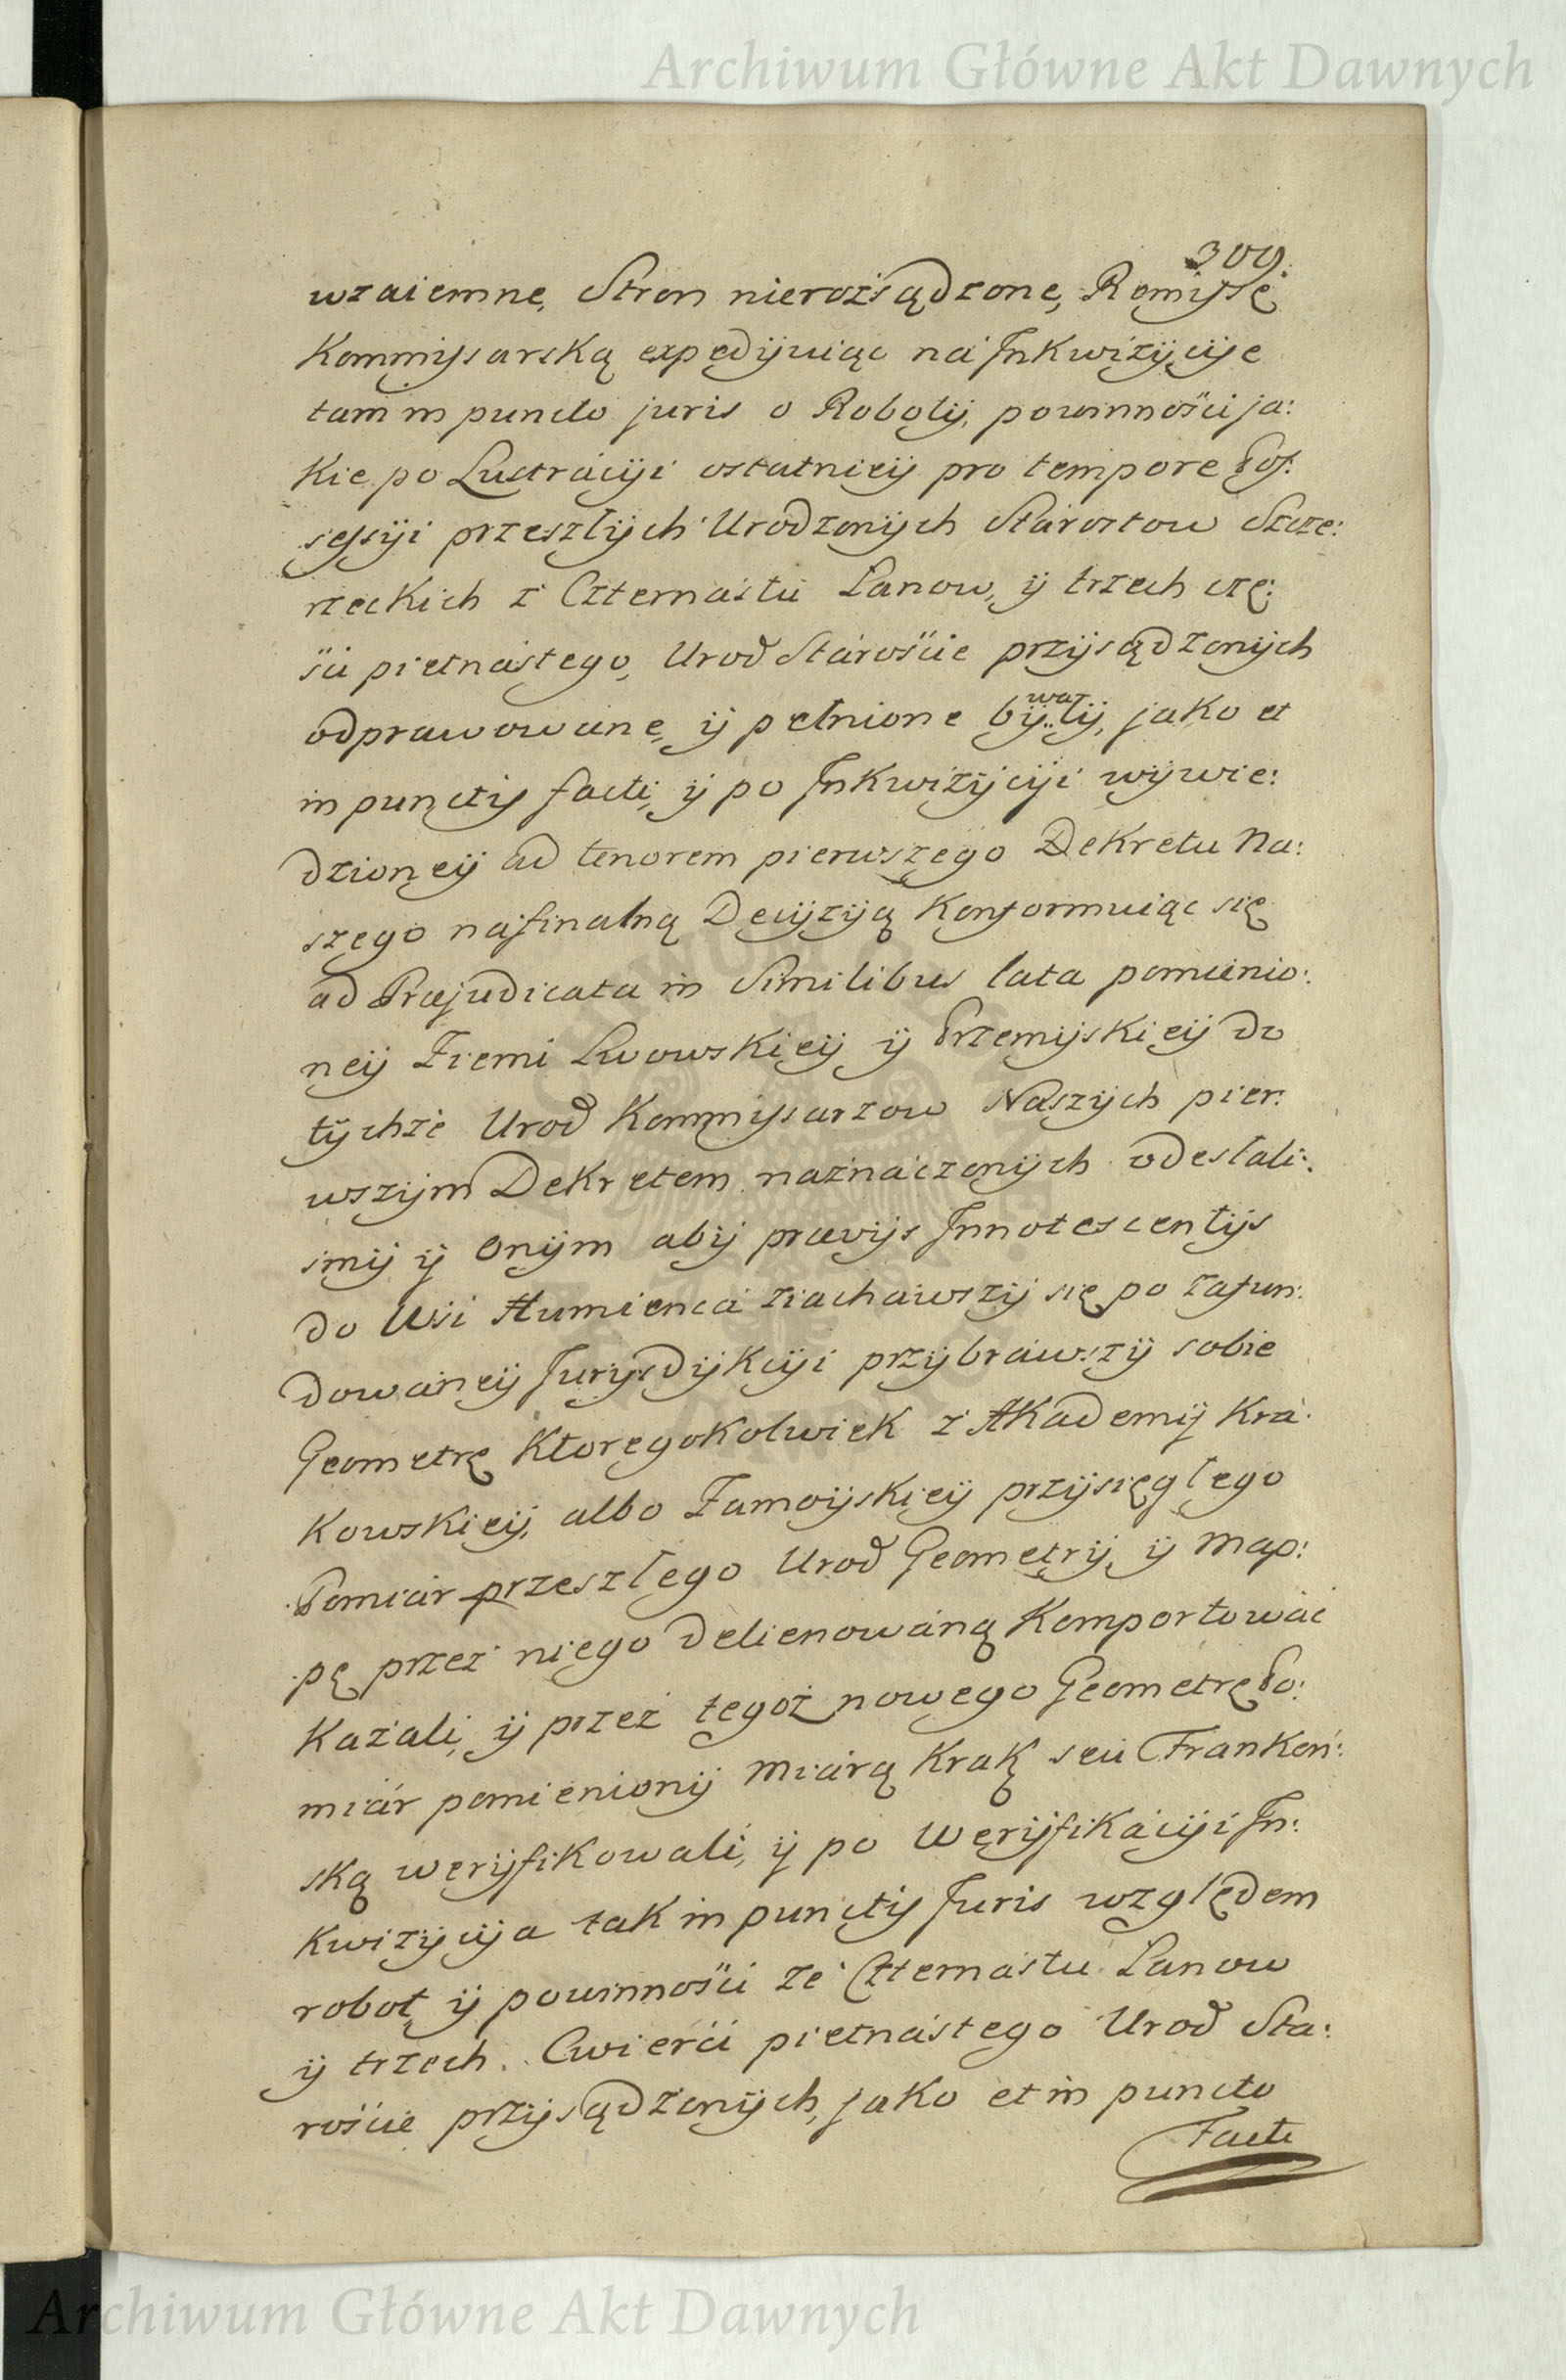 Archiwum Główne Akt Dawnych
309.
wzaiemne, Stron nierozsądzone, Remissę
Kommissarską expedijuiąc na Inkwizycije
tam in puncto juris o Roboty, powinności ja:
kie po Lustracyi ostatniey pro tempore Pos:
sessyi przeszłych Urodzonych Starostow Szcze:
rzeckich z Czternastu Łanow, y trzech czę:
ści pietnastego, Urod Staroście przysądzonych
odprawowane, y pełnione bywały, jako et
in punctis facti, y po Inkwizycyi wywie:
dzioney ad tenorem pierwszego Dekretu Na:
szego na finalną Decyzyą konformuiąc się
ad Præjudicata in Similibus lata pomienio:
ney Ziemi Lwowskiey y Przemyskiey do
tychże Urod Kommissarzow Naszych pier:
wszym Dekretem naznaczonych odesłali:
smy y onym aby prævijs Innotescentijs
do Wsi Humienca ziachawszy się po zafun:
dowaney Jurysdykcyi przybrawszy sobie
Geometrę ktoregokolwiek z Akademij Kra:
kowskiey, albo Zamoyskiey przysięgłego
Pomiar przeszłego Urod Geometry, y Map:
pę przez niego delienowaną komportować
kazali, y przez tegoż nowego Geometrę Po:
miar pomieniony miarą Krak seu Frankoń:
ską weryfikowali, y po Weryfikacyi In:
kwizycya tak in punctis Juris względem
robot, y powinności ze Czternastu Łanow
y trzech Cwierci pietnastego Urod Sta:
roście przysądzonych, jako et in puncto
Facti
Archiwum Główne Akt Dawnych